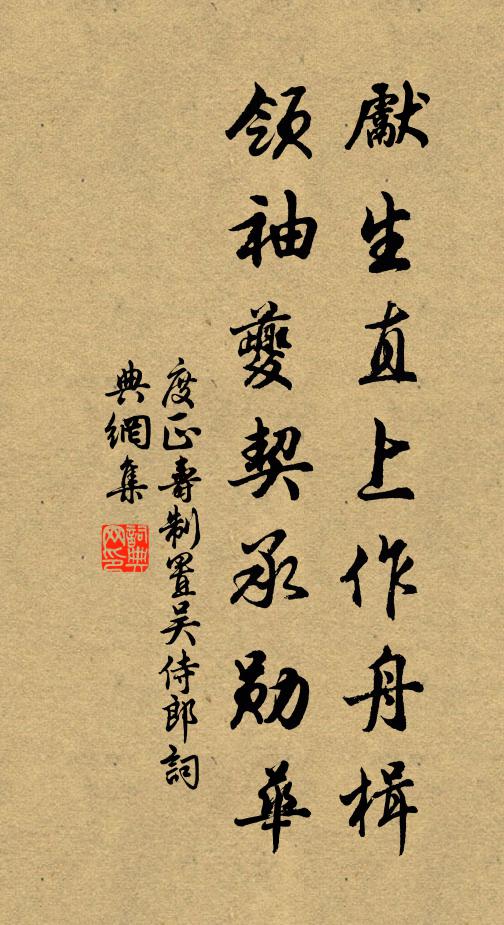 獻生直上作舟楫
領袖夔契承勛華
度正壽制置吳侍郎詞
典網集
詞典网印